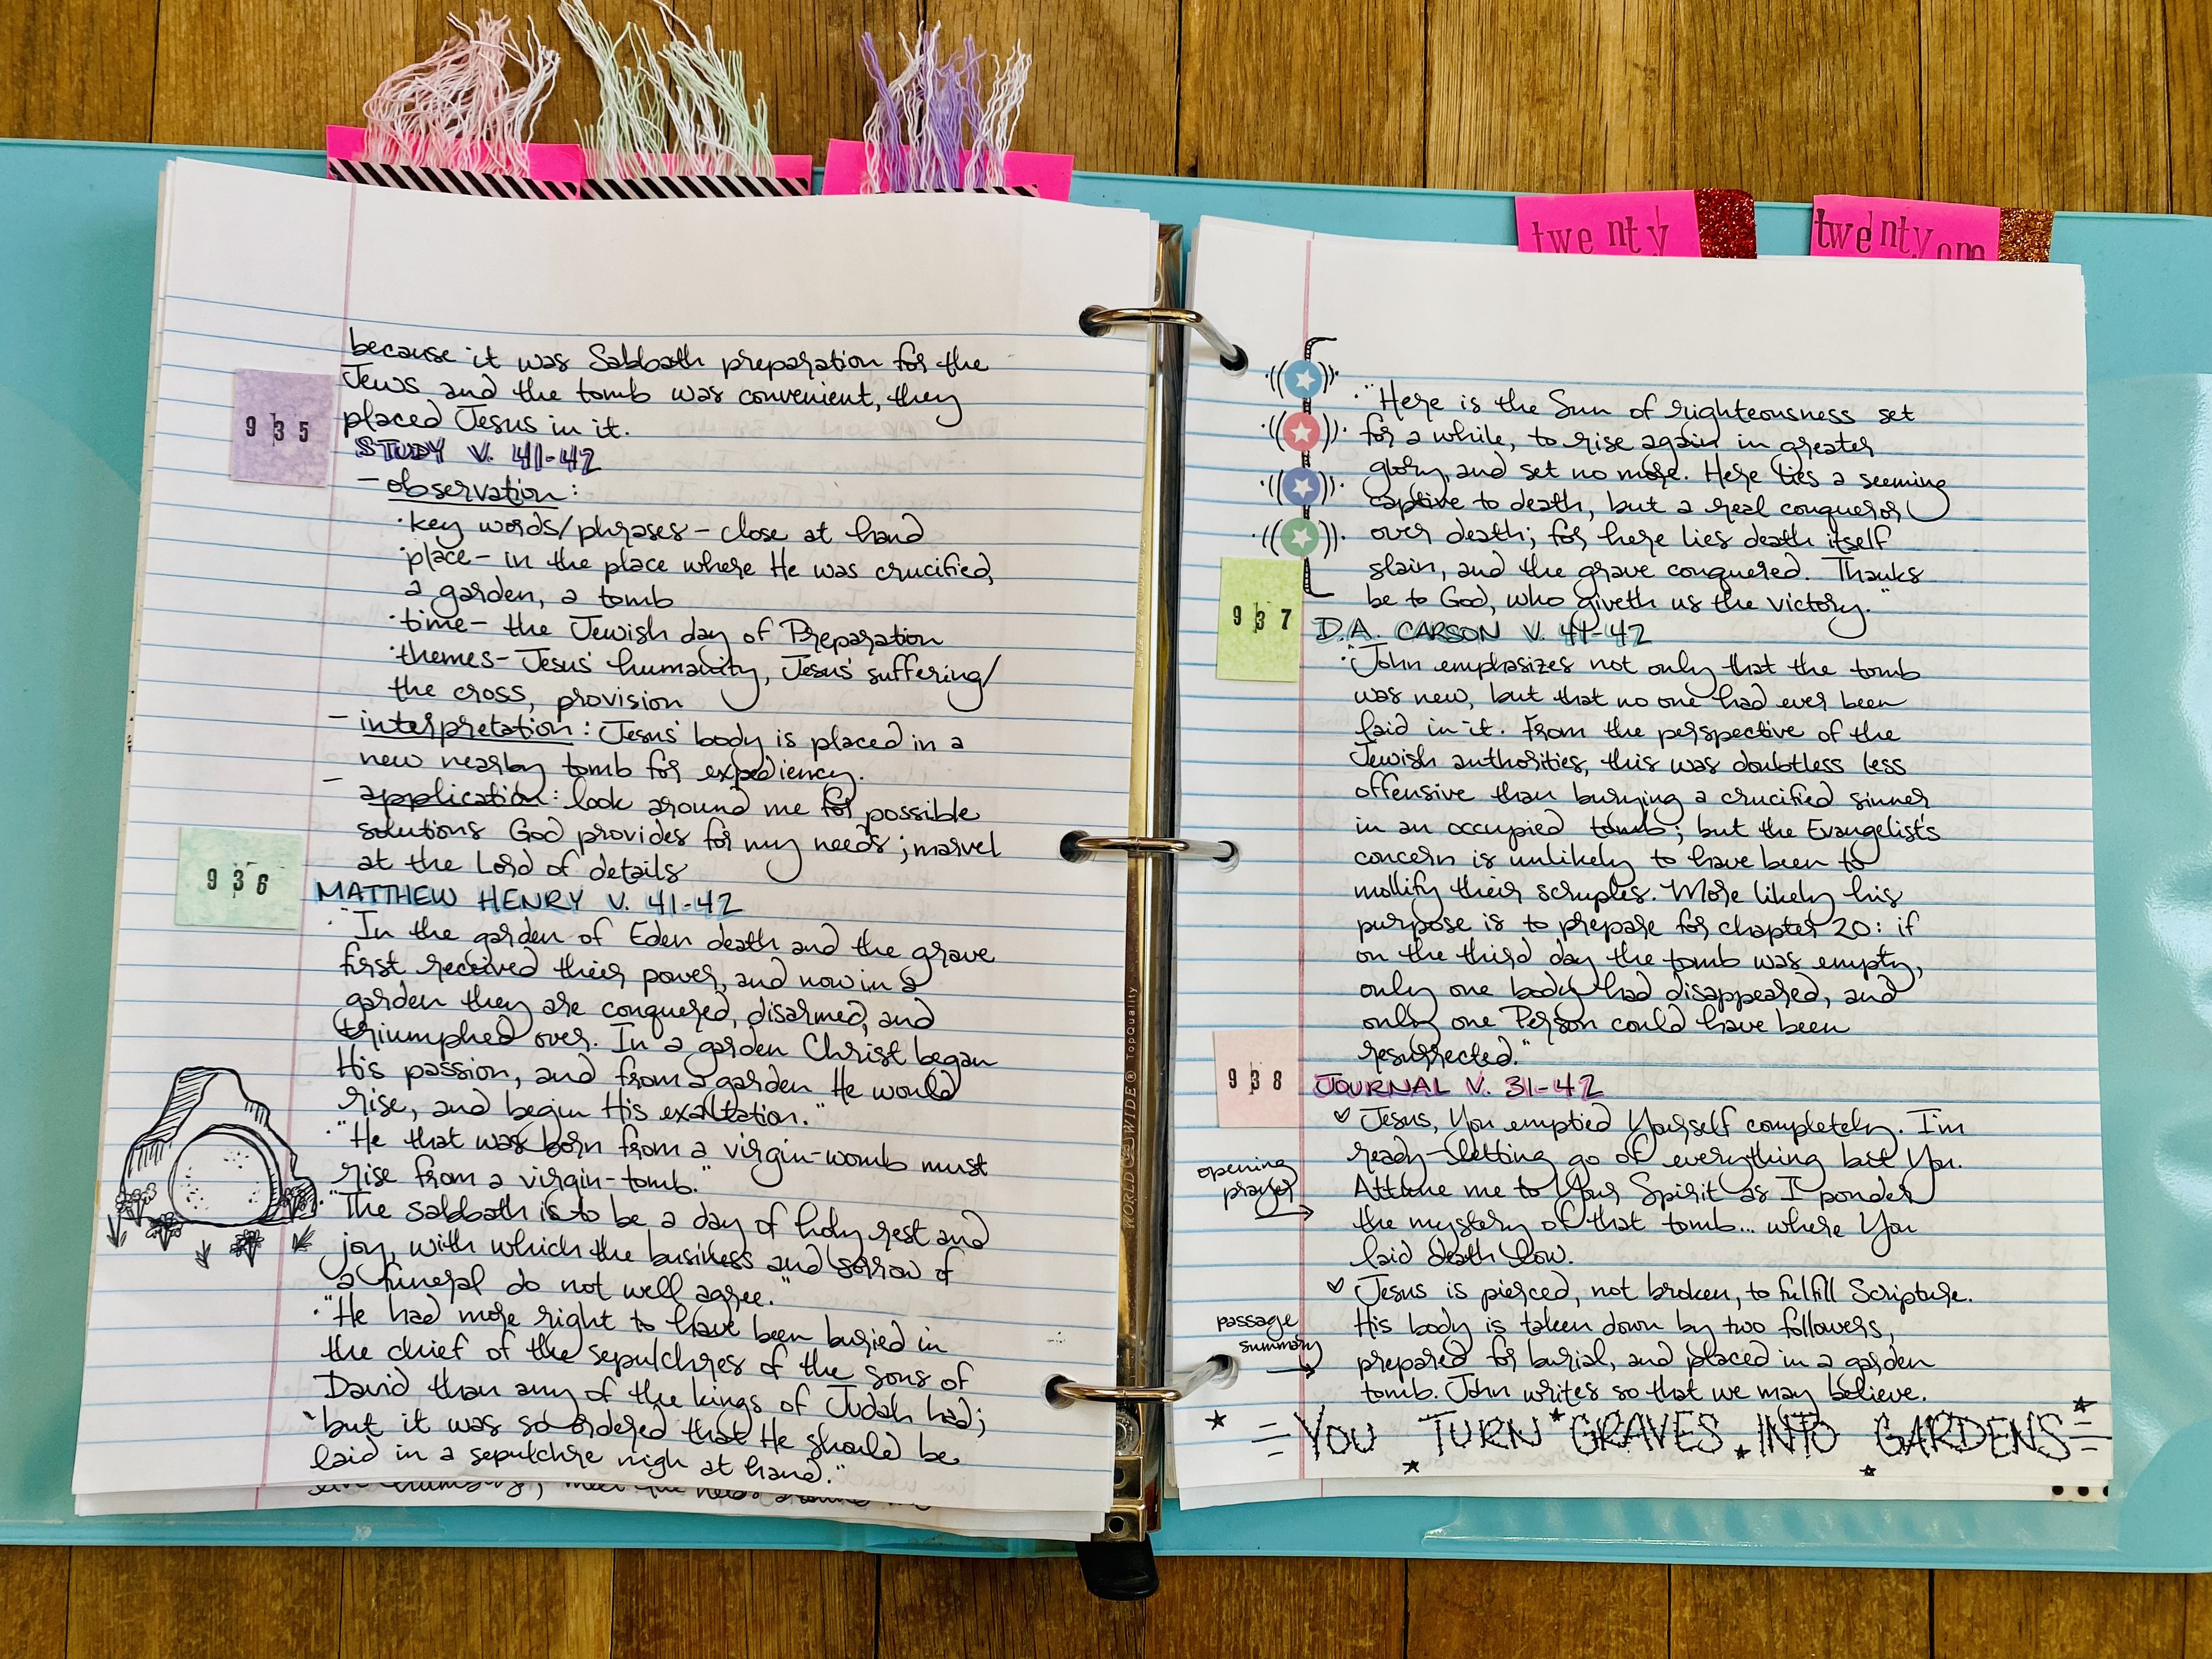 because it was Sabbath preparation for the
Jews and the tomb was convenient, they
placed Jesus in it.
935
STUDY V. 41-42
- observation:
· key words/phrases - close at hand
· place - in the place where He was crucified,
a garden, a tomb
· time - the Jewish day of Preparation
· themes - Jesus' humanity, Jesus' suffering/
the cross, provision
- interpretation: Jesus' body is placed in a
new nearby tomb for expediency.
- application: look around me for possible
solutions God provides for my needs; marvel
at the Lord of details
936
MATTHEW HENRY V. 41-42
· "In the garden of Eden death and the grave
first received their power, and now in a
garden they are conquered, disarmed, and
triumphed over. In a garden Christ began
His passion, and from a garden He would
rise, and begin His exaltation."
· "He that was born from a virgin-womb must
rise from a virgin-tomb."
· "The Sabbath is to be a day of holy rest and
joy, with which the business and sorrow of
a funeral do not well agree."
· "He had more right to have been buried in
the chief of the sepulchres of the sons of
David than any of the kings of Judah had;
but it was so ordered that He should be
laid in a sepulchre nigh at hand."
WORLD WIDE ® TopQuality
twenty
twenty one
· "Here is the Sun of righteousness set
for a while, to rise again in greater
glory, and set no more. Here lies a seeming
captive to death, but a real conqueror
over death; for here lies death itself
slain, and the grave conquered. Thanks
be to God, who giveth us the victory."
937
D.A. CARSON V. 41-42
· "John emphasizes not only that the tomb
was new, but that no one had ever been
laid in it. From the perspective of the
Jewish authorities, this was doubtless less
offensive than burying a crucified sinner
in an occupied tomb; but the Evangelist's
concern is unlikely to have been to
mollify their scruples. More likely his
purpose is to prepare for chapter 20: if
on the third day the tomb was empty,
only one body had disappeared, and
only one Person could have been
resurrected."
938
JOURNAL V. 31-42
♡ Jesus, You emptied Yourself completely. I'm
ready - letting go of everything but You.
opening
prayer
Attune me to Your Spirit as I ponder
the mystery of that tomb... where You
laid death low.
♡ Jesus is pierced, not broken, to fulfill Scripture.
passage
summary
His body is taken down by two followers,
prepared for burial, and placed in a garden
tomb. John writes so that we may believe.
YOU TURN GRAVES INTO GARDENS